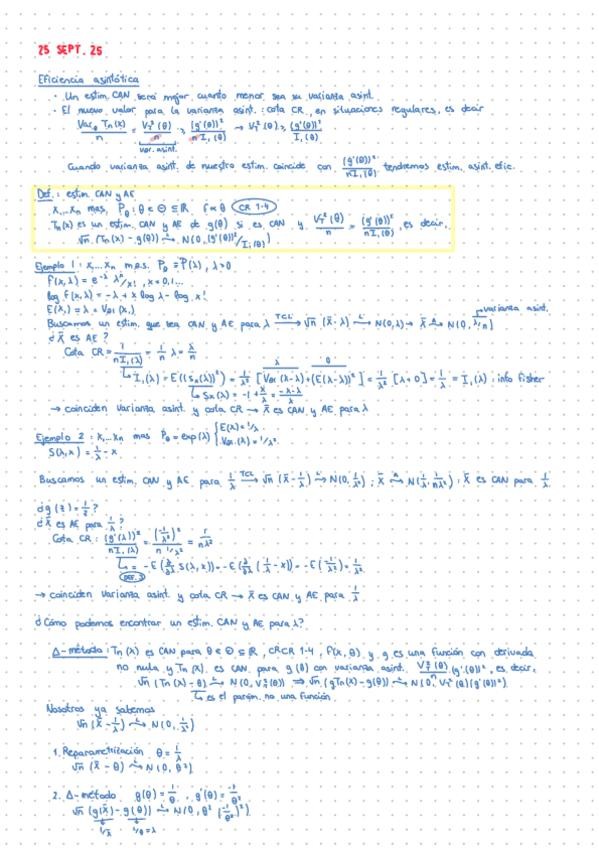 25 SEPT. 25
Eficiencia asintótica
· Un estim. CAN será mejor cuanto menor sea su varianza asint.
· El nuevo valor para la varianza asint.: cota CR, en situaciones regulares, es decir
Var_θ Tn(X) / n = V_T²(θ) / n ≥ (g'(θ))² / n I₁(θ) → V_T²(θ) ≥ (g'(θ))² / I₁(θ)
var. asint.
Cuando varianza asint. de nuestro estim. coincide con (g'(θ))² / nI₁(θ) tendremos estim. asint. efic.
Def.: estim. CAN y AE
X₁...Xn mas, P_θ : θ ∈ Θ ⊆ ℝ CR 1-4
Tn(x) es un estim. CAN y AE de g(θ) si es CAN y V_T²(θ) / n = (g'(θ))² / nI₁(θ), es decir,
√n (Tn(x) - g(θ)) →L N(0, (g'(θ))² / I₁(θ))
Ejemplo 1: X₁...Xn m.a.s. P_θ = P(λ), λ>0
f(x,λ) = e^-λ λ^x / x!, x=0,1...
log f(x,λ) = -λ + x log λ - log x!
E(X₁) = λ = Var(X₁)
varianza asint.
Buscamos un estim. que sea CAN y AE para λ →TCL √n (X̄-λ) →L N(0,λ) → X̄ →A N(0, λ/n)
¿ X̄ es AE ?
Cota CR = 1 / nI₁(λ) = 1/n λ = λ/n
I₁(λ) = E((S_x(λ))²) = 1/λ² [Var(X-λ) + (E(X-λ))²] = 1/λ² [λ+0] = 1/λ = I₁(λ): info Fisher
→ coinciden varianza asint. y cota CR → X̄ es CAN y AE para λ
Ejemplo 2: X₁...Xn mas P_θ = exp(λ) { E(X) = 1/λ
Var.(X) = 1/λ²
S(λ,x) = 1/λ - x
Buscamos un estim. CAN y AE para 1/λ →TCL √n (X̄ - 1/λ) →L N(0, 1/λ²); X̄ →A N(1/λ, 1/nλ²): X̄ es CAN para 1/λ
¿g(z) = 1/z?
¿ X̄ es AE para 1/λ ?
Cota CR: (g'(λ))² / nI₁(λ) = (-1/λ²)² / n 1/λ² = 1 / nλ²
= -E(∂/∂λ S(λ,x)) = -E(∂/∂λ (1/λ - x)) = -E(-1/λ²) = 1/λ²
→ coinciden varianza asint. y cota CR → X̄ es CAN y AE para 1/λ
¿Cómo podemos encontrar un estim. CAN y AE para λ?
Δ-método: Tn(x) es CAN para θ ∈ Θ ⊆ ℝ, CRCR 1-4, f(x,θ) y g es una función con derivada
no nula y Tn(x) es CAN para g(θ) con varianza asint. V_T²(θ) / n (g'(θ))², es decir,
√n (Tn(x) - θ) →L N(0, V_T²(θ)) ⇒ √n (gTn(x) - g(θ)) →L N(0, V_T²(θ)(g'(θ))²)
es el parám. no una función
Nosotros ya sabemos
√n (X̄ - 1/λ) →L N(0, 1/λ²)
1. Reparametrización θ = 1/λ
√n (X̄ - θ) →L N(0, θ²)
2. Δ-método g(θ) = 1/θ, g'(θ) = -1/θ²
√n (g(X̄) - g(θ)) →L N(0, θ² (-1/θ²)²)
1/X̄ 1/θ = λ